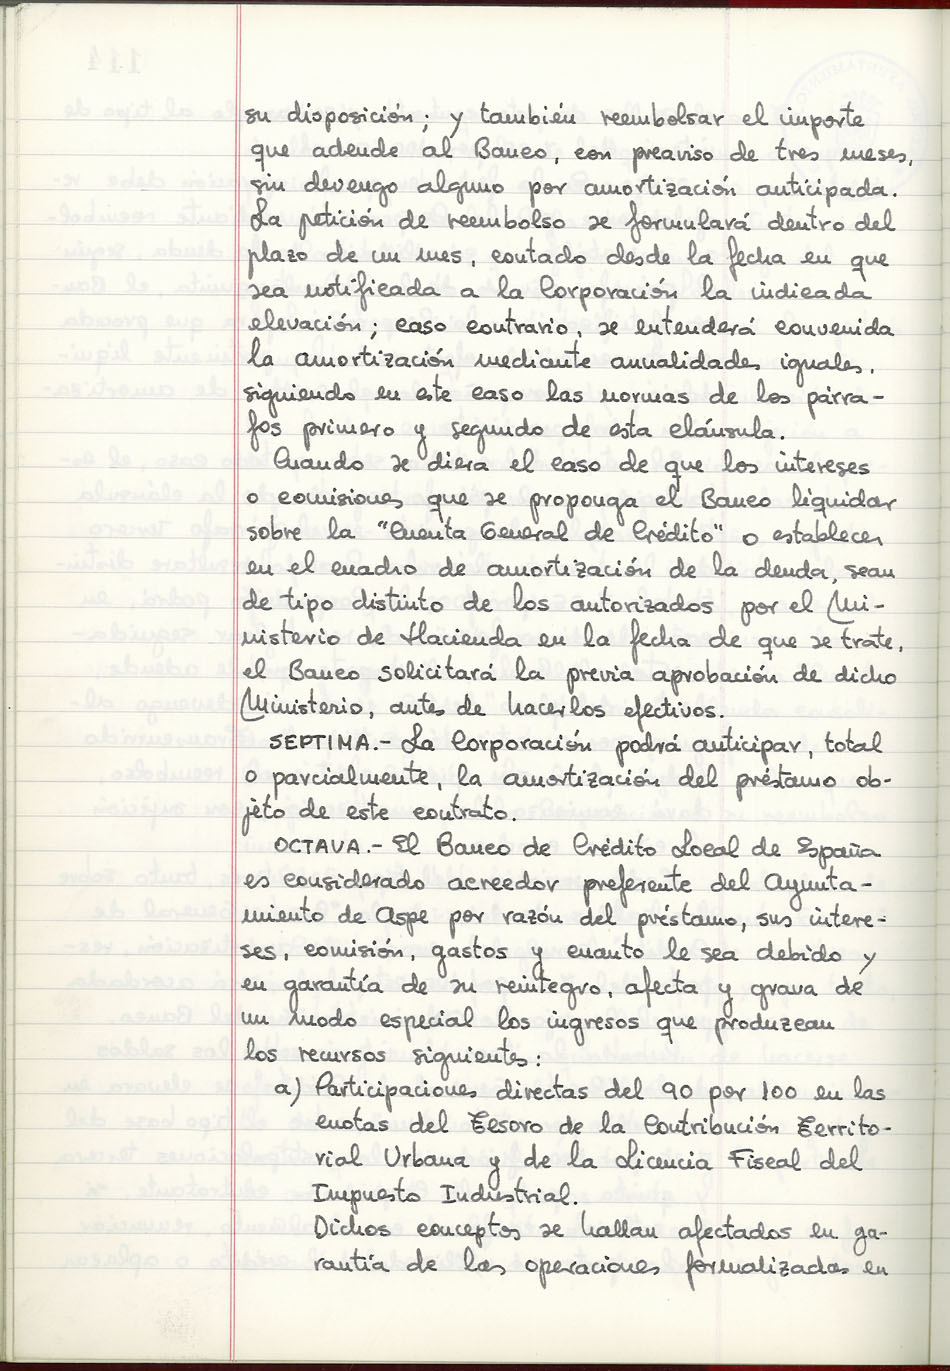 su disposición; y también reembolsar el importe
que adeude al Banco, con preaviso de tres meses,
sin devengo alguno por amortización anticipada.
La petición de reembolso se formulará dentro del
plazo de un mes, contado desde la fecha en que
sea notificada a la Corporación la indicada
elevación; caso contrario, se entenderá convenida
la amortización mediante anualidades iguales,
siguiendo en este caso las normas de los párra-
fos primero y segundo de esta cláusula.
Cuando se diera el caso de que los intereses
o comisiones que se proponga el Banco liquidar
sobre la "Cuenta General de Crédito" o establecer
en el cuadro de amortización de la deuda, sean
de tipo distinto de los autorizados por el Mi-
nisterio de Hacienda en la fecha de que se trate,
el Banco solicitará la previa aprobación de dicho
Ministerio, antes de hacerlos efectivos.
SEPTIMA.- La Corporación podrá anticipar, total
o parcialmente, la amortización del préstamo ob-
jeto de este contrato.
OCTAVA.- El Banco de Crédito Local de España
es considerado acreedor preferente del Ayunta-
miento de Aspe por razón del préstamo, sus intere-
ses, comisión, gastos y cuanto le sea debido y
en garantía de su reintegro, afecta y grava de
un modo especial los ingresos que produzcan
los recursos siguientes:
a) Participaciones directas del 90 por 100 en las
cuotas del Tesoro de la Contribución Territo-
rial Urbana y de la Licencia Fiscal del
Impuesto Industrial.
Dichos conceptos se hallan afectados en ga-
rantía de las operaciones formalizadas en